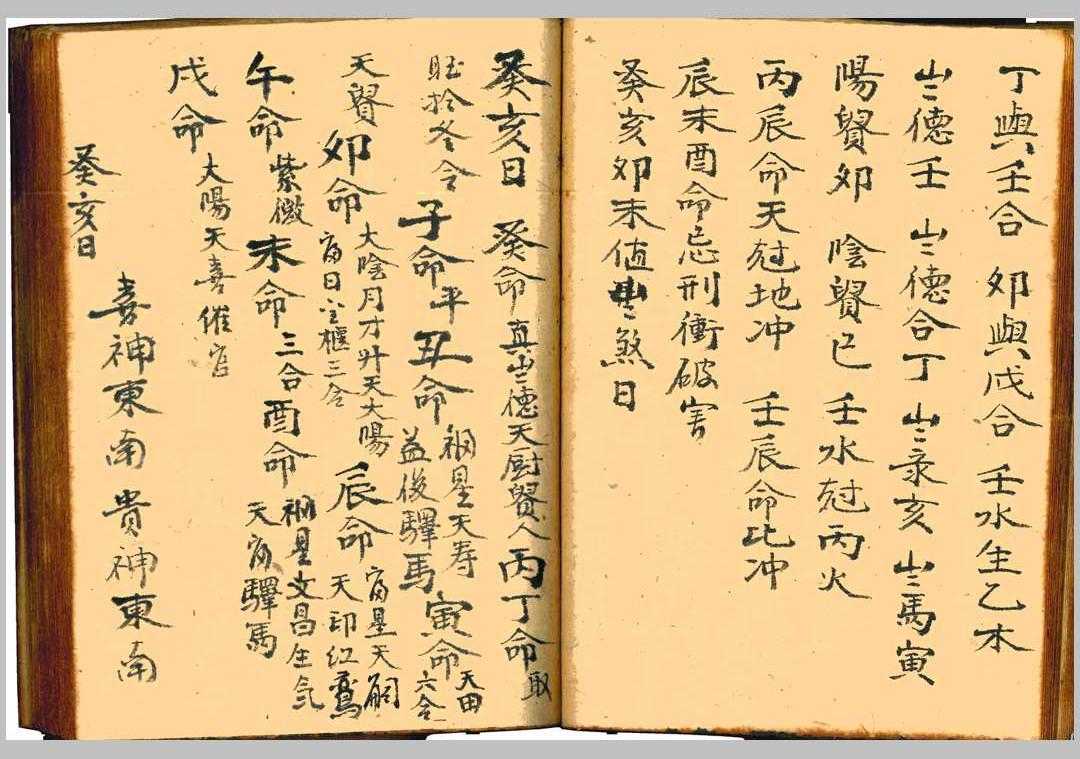 丁與壬合 卯與戌合 壬水生乙木
歲德壬 歲德合丁 歲彔亥 歲馬寅
陽貴卯 陰貴巳 壬水尅丙火
丙辰命天尅地冲 壬辰命比冲
辰未酉命忌刑衝破害
癸亥卯未值歲煞日
癸亥日 癸命 真歲德天厨貴人 丙丁命 取
冬令 子命 平 丑命 福星天寿 益後驛馬 寅命 天田 六合
天貴 卯命 大陰月才升天大陽 富日 三合 辰命 富星天嗣 天印红鸞
午命 紫微 未命 三合 酉命 福星文昌生氣 天富驛馬
戌命 大陽天喜催官
癸亥日
喜神東南 貴神東南